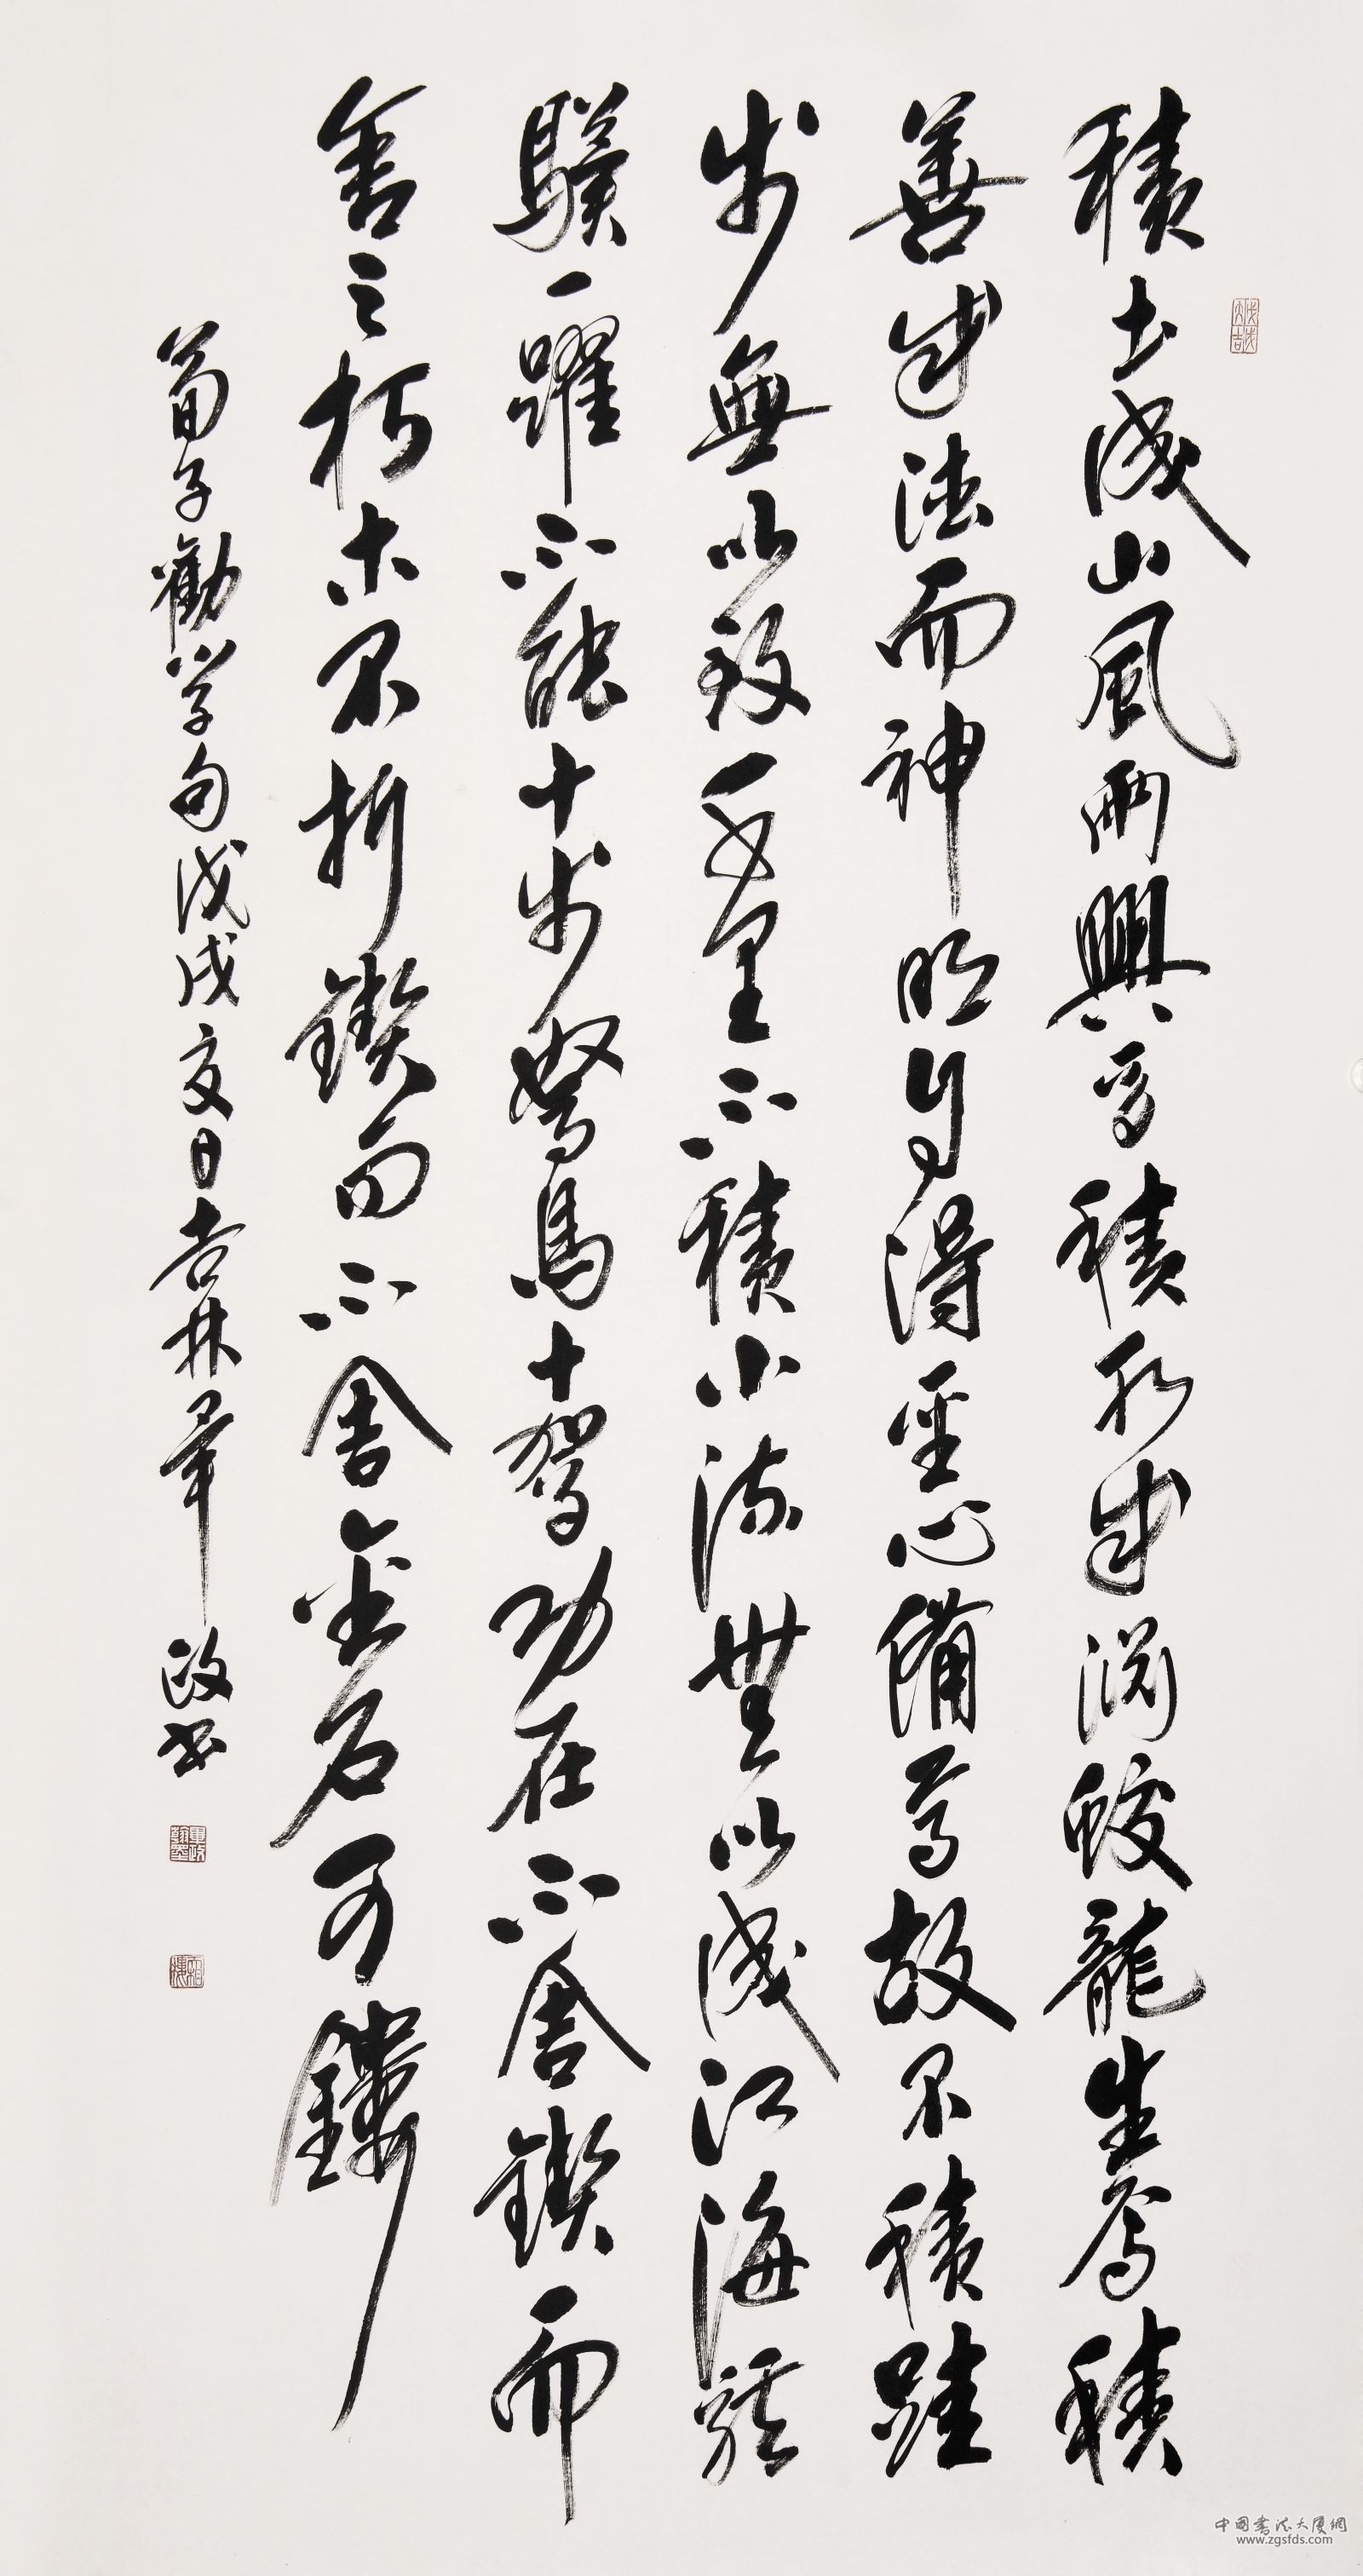 積土成山風雨興焉積水成淵蛟龍生焉積
善成德而神明自得聖心備焉故不積跬
步無以致千里不積小流無以成江海騏
驥一躍不能十步駑馬十駕功在不舍鍥而
舍之朽木不折鍥而不舍金石可鏤
荀子勸學句戊戌夏日吉林軍政書
戊戌大吉
軍政翰墨
中國書法大廈網
www.zgsfds.com